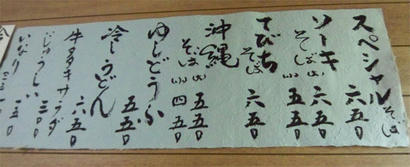 スペシャルそば
六五〇
ソーキそば(大) 六五〇
(小) 五五〇
てびちそば
六五〇
沖縄そば(大) 五五〇
(小) 四五〇
ゆしどうふ
五五〇
冷しうどん
五五〇
牛タキサラダ
六五〇
じゅうしい
三〇〇
いなり